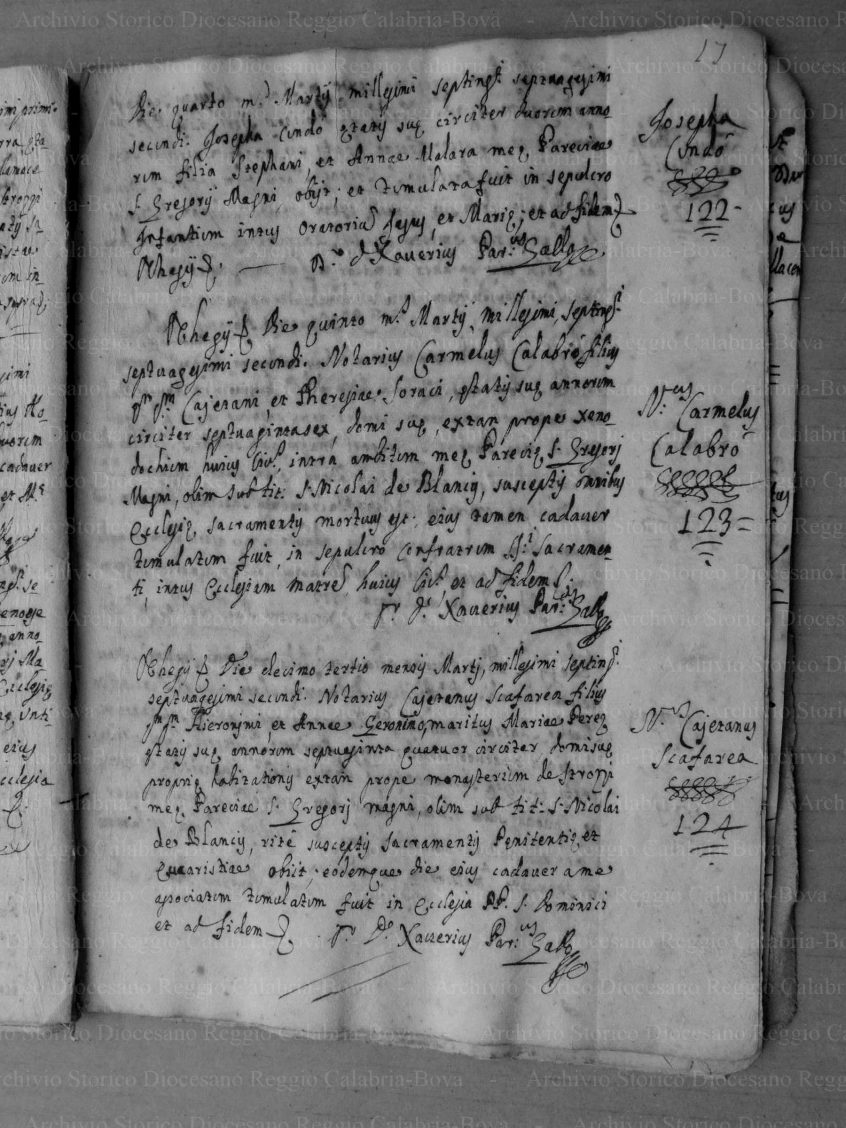 17
Die quarto m.s Martij millesimi septing.i septuagesimi
secundi. Josepha Cundò ętatis suę circiter duorum anno
rum filia Stephani, et Annae Malara meę Pareciae
S. Gregorij Magni, obijt; et tumulata fuit in sepulcro
Infantium intus Oratoriũ Jesus, et Marię; et ad fidem
Rhegij D. Xaverius Par.us Gallo
Josepha
Cundò
122
Rhegij Die quinto m.s Martij millesimi, septing.i
septuagesimi secundi. Notarius Carmelus Calabrò filius
qm qm Cajetani, et Theresiae Soraci, ętatis suę annorum
circiter septuagintasex, domi suę, extan prope xeno
dochium huius Civ.s, intra ambitum meę Parecię S. Gregorj
Magni, olim sub tit: S. Nicolai de Blancis, susceptis omnibus
Ecclesię sacramentis mortuus est: eius tamen cadaver
tumulatum fuit, in sepulcro Confratrum SS.i Sacramen
ti, intus Ecclesiam Matrẽ huius Civ.s et ad fidem
D. Xaverius Par.us Gallo
N.us Carmelus
Calabrò
123
Rhegij Die decimo tertio mensis Martij, millesimi septing.i
septuagesimi secundi. Notarius Cajetanus Scafarea filius
qm qm Hieronymi, et Annae Geronimo, maritus Mariae Perez
ętatis suę annorum septuaginta quatuor circiter domi suę
proprię habitationis extan prope monasterium de Stroppi
meę Pareciae S. Gregorj magni, olim sub tit: S. Nicolai
de Blancis, ritè susceptis sacramentis Penitentię, et
Eucaristiae obiit; eodemque die eius cadaver a me
asociatum tumulatum fuit in Ecclesia PP. S. Dominici
et ad fidem D. Xaverius Par.us Gallo
N.us Cajetanus
Scafarea
124
Archivio Storico Diocesano Reggio Calabria-Bova